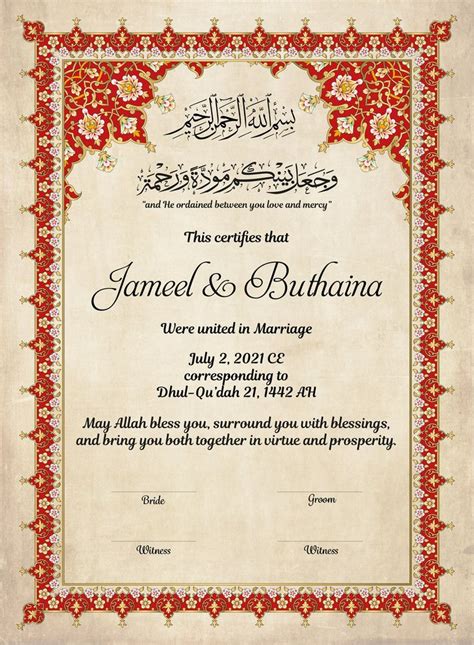 بسم الله الرحمن الرحيم
وجعل بينكم مودة ورحمة
"and He ordained between you love and mercy"
This certifies that
Jameel & Buthaina
Were united in Marriage
July 2, 2021 CE
corresponding to
Dhul-Qu'dah 21, 1442 AH
May Allah bless you, surround you with blessings,
and bring you both together in virtue and prosperity.
Bride
Groom
Witness
Witness